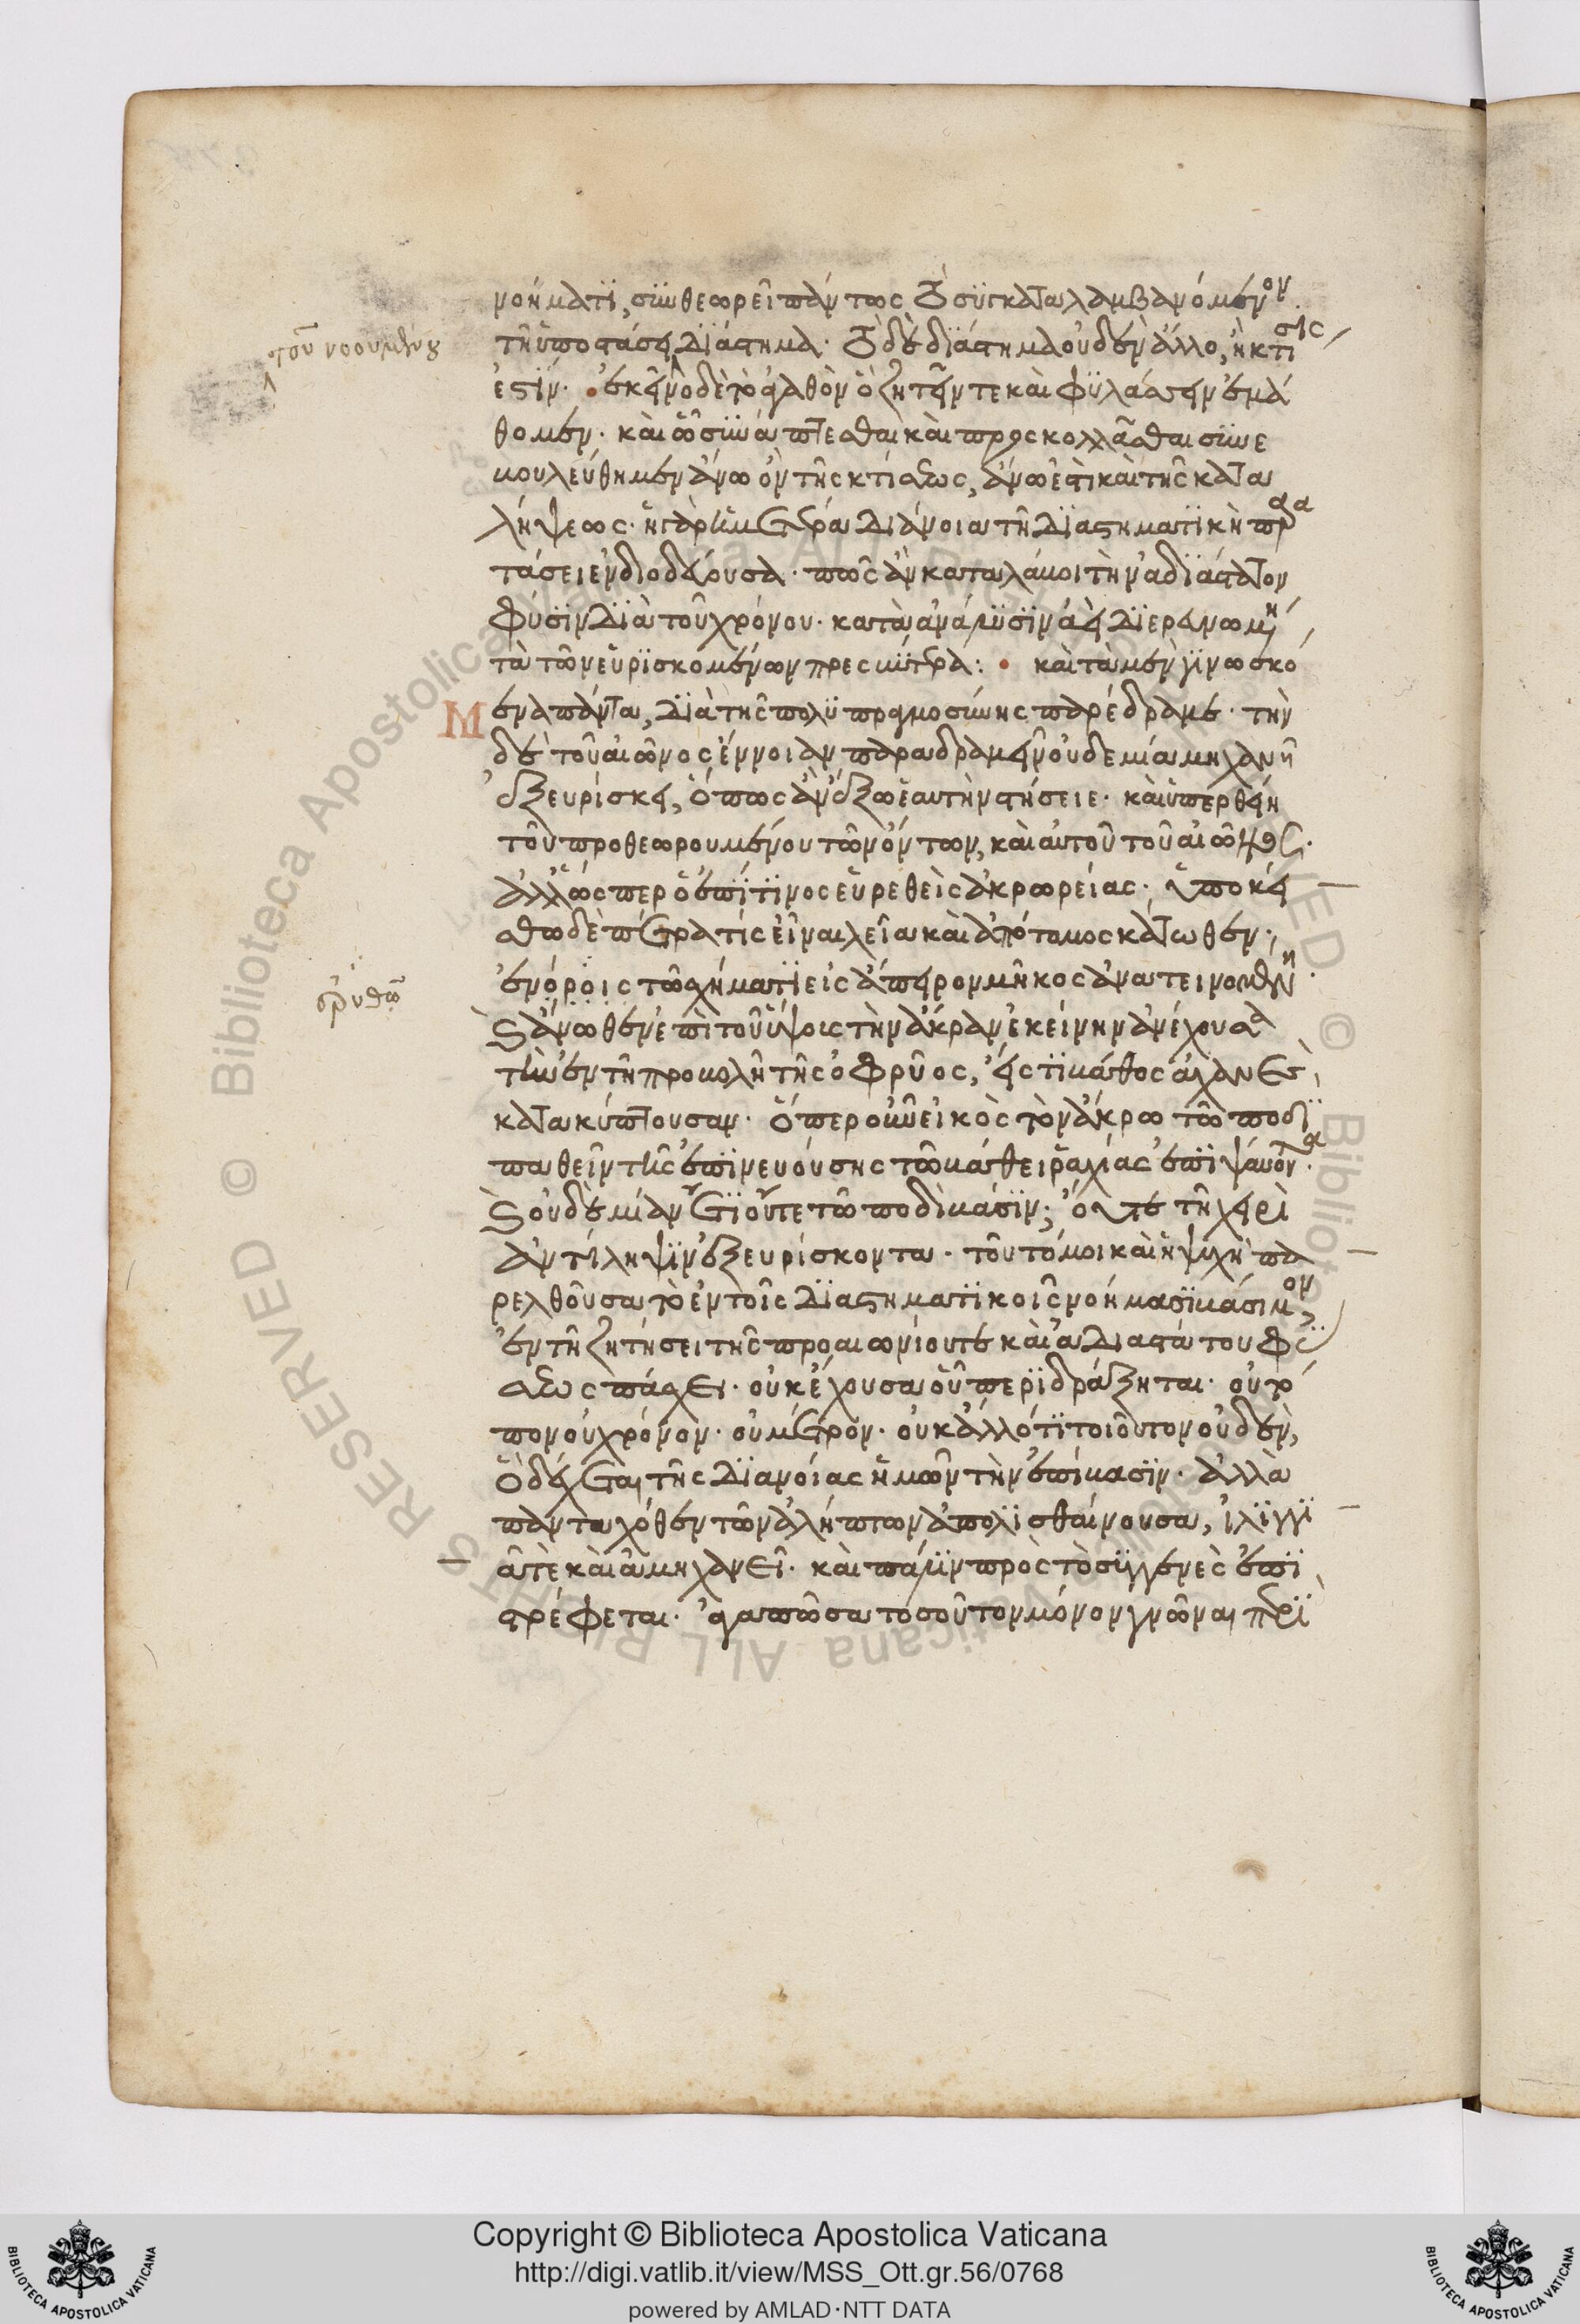 τοῦ νοουμένου
νοήματι, συνθεωρεῖ πάντως τὸ συγκαταλαμβανόμενον
τῇ ὑποστάσει διάστημα· τὸ δὲ διάστημα οὐδὲν ἄλλο, ἢ κτίσις
ἐστίν· ἐκεῖνο δὲ τὸ ἀγαθὸν ὃ ζητεῖν τε καὶ φυλάσσειν ἐμά
θομεν· καὶ ᾧ συνάπτεσθαι καὶ προσκολλᾶσθαι συνε
βουλεύθημεν ἄνω ὂν τῆς κτίσεως, ἄνω ἐστὶ καὶ τῆς κατα
λήψεως· ἡ γὰρ ἡμετέρα διάνοια τῇ διαστηματικῇ παρα
τάσει ἐνδιοδεύουσα· πῶς ἂν καταλάβοι τὴν ἀδιάστατον
φύσιν διὰ τοῦ χρόνου· κατὰ ἀνάλυσιν ἀεὶ διερευνωμένη
τὰ τῶν εὑρισκομένων πρεσβύτερα: καὶ τὰ μὲν γινωσκό
μενα πάντα, διὰ τῆς πολυπραγμοσύνης παρέδραμε· τὴν
δὲ τοῦ αἰῶνος ἔννοιαν παραδραμεῖν οὐδεμία μηχανῇ
ἐξευρίσκει, ὅπως ἂν ἔξω ἑαυτὴν στήσειε· καὶ ὑπερθείη
τοῦ προθεωρουμένου τῶν ὄντων, καὶ αὐτοῦ τοῦ αἰῶνος·
ἀλλ' ὥσπερ ὁ ἐπί τινος εὑρεθεὶς ἀκρωρείας· ὑποκεί
σθω δὲ πέτρα τίς εἶναι λεῖα καὶ ἀπότομος κάτωθεν·
ἐρυθρῷ
ἐν ὅροις τῷ σχήματι εἰς ἄπειρον μῆκος ἀνατεινομένη·
καὶ ἄνωθεν ἐπὶ τοῦ ὕψους τὴν ἄκραν ἐκείνην ἀνέχουσα
τὴν ἐν τῇ προβολῇ τῆς ὀφρύος, εἴς τι βάθος ἀχανὲς
κατακύπτουσαν· ὅπερ οὖν εἰκὸς τὸν ἄκρῳ τῷ ποδὶ
παθεῖν τῆς ἐπινευούσης τῷ βάθει ῥαχίας ἐπιψαύοντα·
καὶ οὐδεμίαν ἔτι οὔτε τῷ ποδὶ βάσιν; οὔτε τῇ χειρὶ
ἀντίληψιν ἐξευρίσκοντα· τοῦτό μοι καὶ ἡ ψυχὴ πα
ρελθοῦσα τὸ ἐν τοῖς διαστηματικοῖς νοήμασι βάσιμον,
ἐν τῇ ζητήσει τῆς προαιωνίου τε καὶ ἀδιαστάτου φύ
σεως πάσχει· οὐκ ἔχουσα οὗ περιδράξηται· οὐ τό
πον οὐ χρόνον· οὐ μέτρον· οὐκ ἄλλό τι τοιοῦτον οὐδὲν,
ὃ δέχεται τῆς διανοίας ἡμῶν τὴν ἐπίβασιν· ἀλλὰ
πανταχόθεν τῶν ἀλήπτων ἀπολισθαίνουσα, ἰλιγγι
ᾷ τὲ καὶ ἀμηχανεῖ· καὶ πάλιν πρὸς τὸ συγγενὲς ἐπι
στρέφεται· ἀγαπῶσα τοσοῦτον μόνον γνῶναι περὶ
Copyright © Biblioteca Apostolica Vaticana
http://digi.vatlib.it/view/MSS_Ott.gr.56/0768
powered by AMLAD·NTT DATA